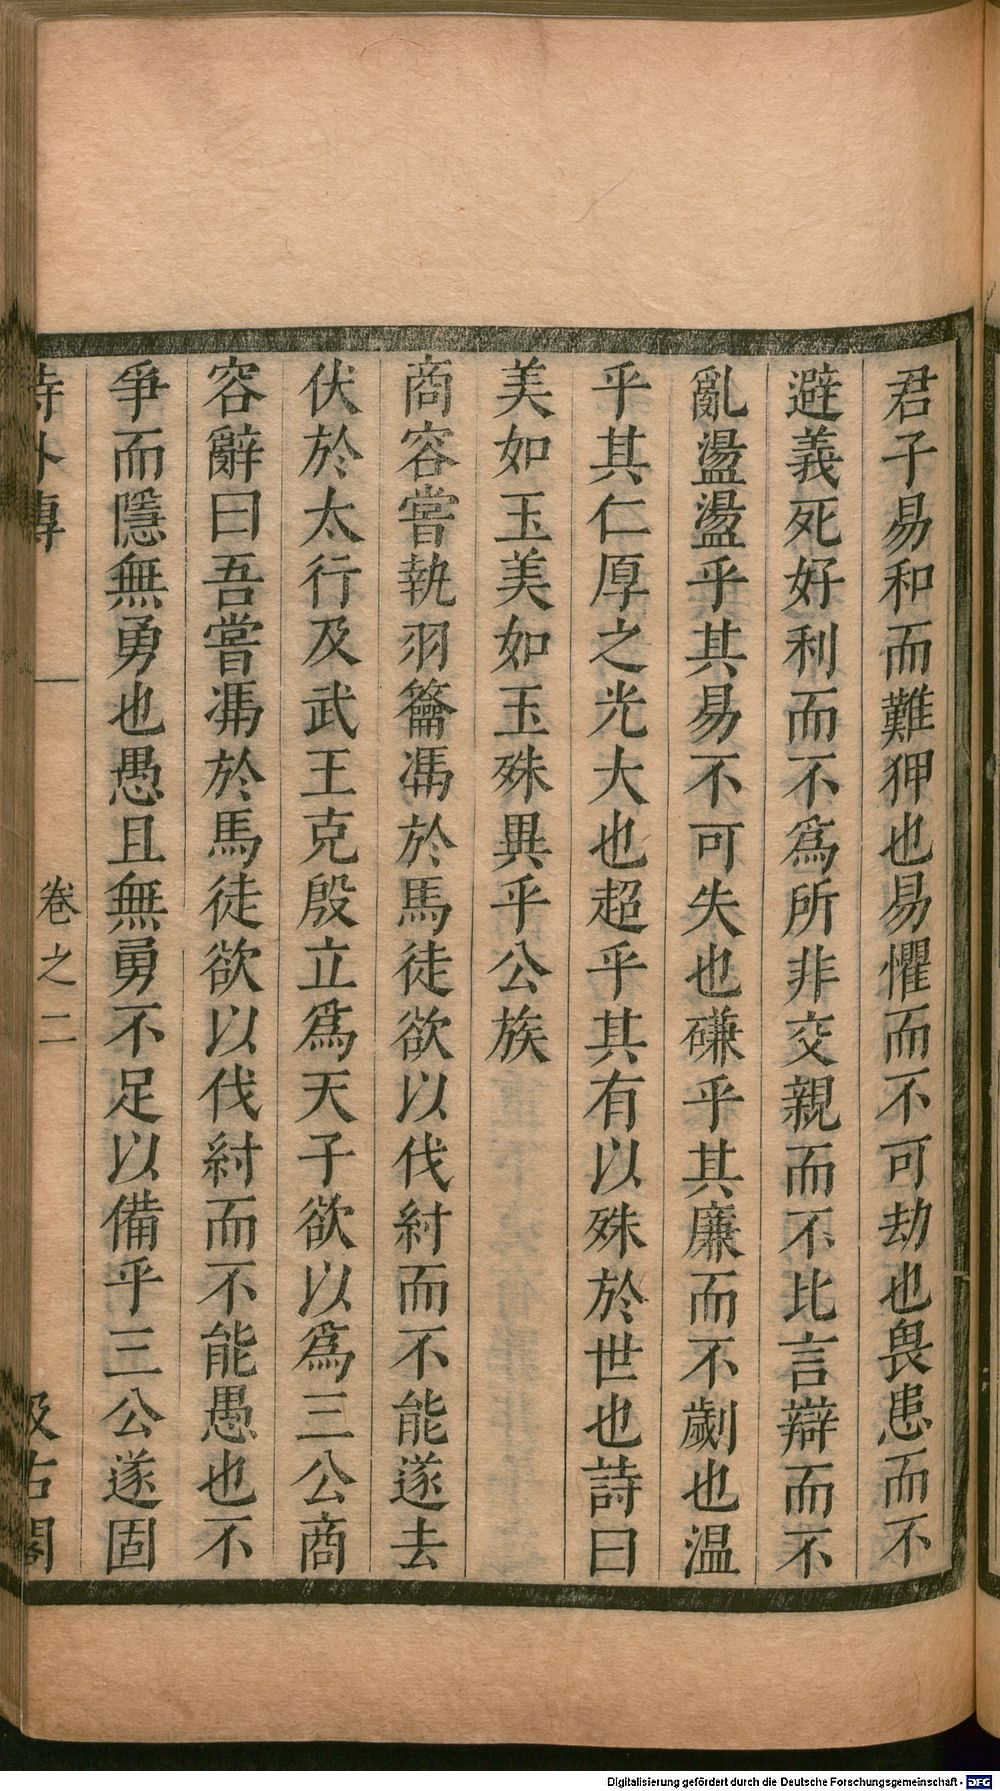 君子易和而難狎也易懼而不可劫也畏患而不
避義死好利而不爲所非交親而不比言辯而不
亂盪盪乎其易不可失也磏乎其廉而不劌也温
乎其仁厚之光大也超乎其有以殊於世也詩曰
美如玉美如玉殊異乎公族
商容嘗執羽籥馮於馬徒欲以伐紂而不能遂去
伏於太行及武王克殷立爲天子欲以爲三公商
容辭曰吾嘗馮於馬徒欲以伐紂而不能愚也不
爭而隱無勇也愚且無勇不足以備乎三公遂固
詩外傳 卷之二 汲古閣
Digitalisierung gefördert durch die Deutsche Forschungsgemeinschaft - DFG